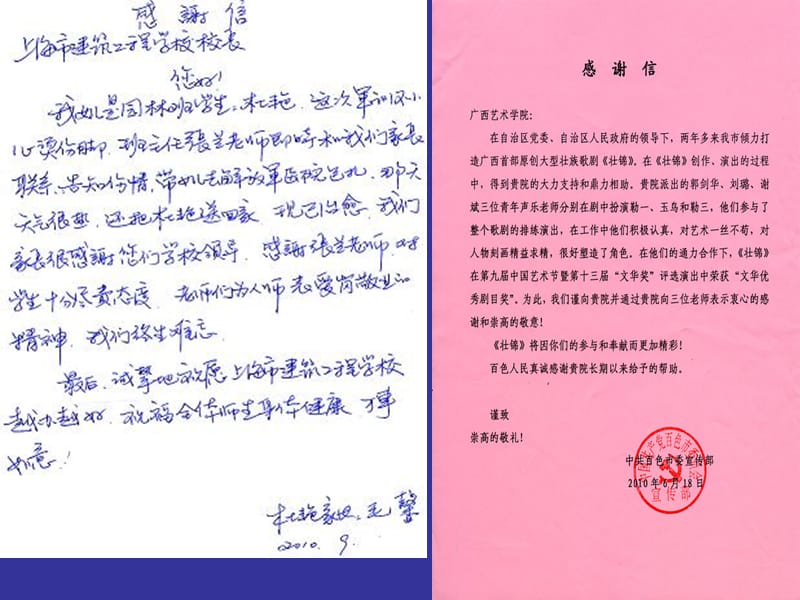 感 謝 信
上海市建筑工程学校校长
您好!
我女儿是园林班学生:杜艳.这次军训不小
心烫伤脚.班主任張兰老师即時和我们家長
联系.告知伤情,带她去解放軍医院包扎.那天
天气很热.还把杜艳送回家.现已治愈.我们
家長很感謝您们学校领导.感謝張兰老师.对
学生十分尽责态度.老师们为人师表爱岗敬业的
精神.我们终生难忘
最后.诚挚地祝愿上海市建筑工程学校
越办越好.祝福全体师生身体健康 万事
如意!
杜艳家长:毛馨
2010.9.
感 谢 信
广西艺术学院:
在自治区党委、自治区人民政府的领导下,两年多来我市倾力打
造广西首部原创大型壮族歌剧《壮锦》。在《壮锦》创作、演出的过程
中,得到贵院的大力支持和鼎力相助。贵院派出的郭剑华、刘璐、谢
斌三位青年声乐老师分别在剧中扮演勒一、玉鸟和勒三,他们参与了
整个歌剧的排练演出,在工作中他们积极认真,对艺术一丝不苟,对
人物刻画精益求精,很好塑造了角色。在他们的通力合作下,《壮锦》
在第九届中国艺术节暨第十三届“文华奖”评选演出中荣获“文华优
秀剧目奖”。为此,我们谨向贵院并通过贵院向三位老师表示衷心的感
谢和崇高的敬意!
《壮锦》将因你们的参与和奉献而更加精彩!
百色人民真诚感谢贵院长期以来给予的帮助。
谨致
崇高的敬礼!
中共百色市委宣传部
2010年6月18日
中国共产党百色市委员会
宣传部